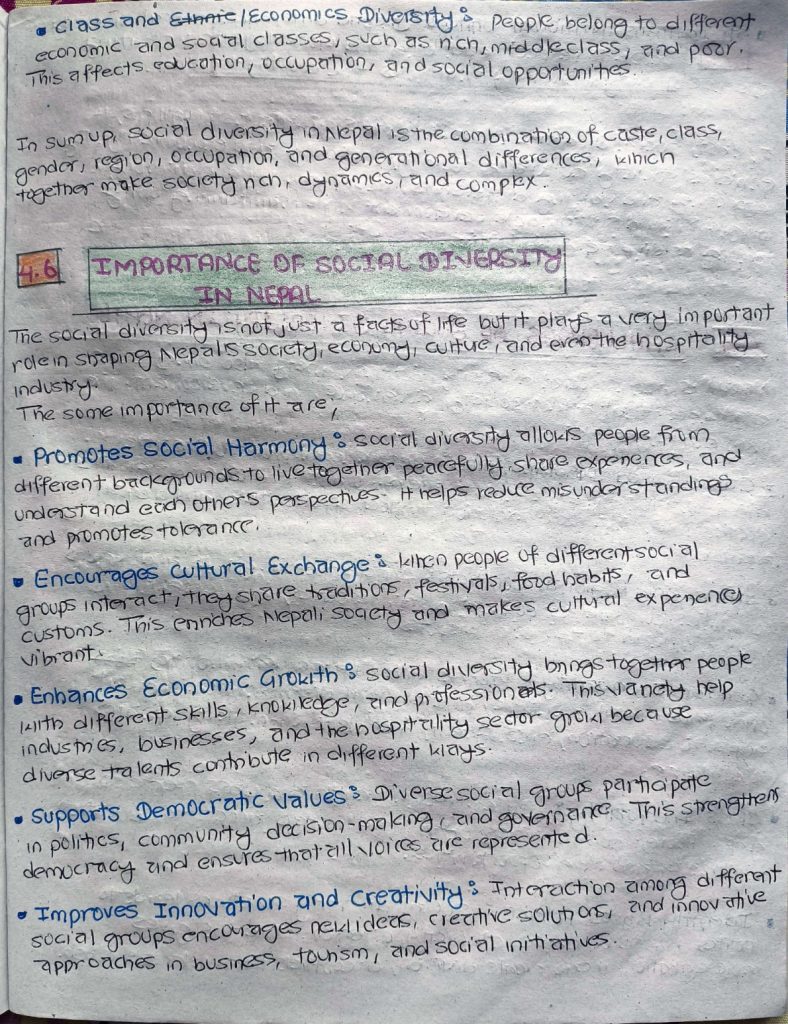 • Class and Ethnic/Economics Diversity : People belong to different
economic and social classes, such as rich, middle class, and poor.
This affects education, occupation, and social opportunities.
In sum up, social diversity in Nepal is the combination of caste, class,
gender, region, occupation, and generational differences, which
together make society rich, dynamics, and complex.
4.6 IMPORTANCE OF SOCIAL DIVERSITY
IN NEPAL
The social diversity is not just a facts of life but it plays a very important
role in shaping Nepal's society, economy, cultue, and even the hospitality
industry.
The some importance of it are,
• Promotes Social Harmony : social diversity allows people from
different backgrounds to live together peacefully, share experiences, and
understand each other's perspectives. It helps reduce misunderstandings
and promotes tolerance.
• Encourages Cultural Exchange : when people of different social
groups interact, they share traditions, festivals, food habits, and
customs. This enriches Nepali society and makes cultural experience
vibrant.
• Enhances Economic Growth : social diversity brings together people
with different skills, knowledge, and professionals. This variety help
industries, businesses, and the hospitality sector grow because
diverse talents contribute in different ways.
• Supports Democratic Values : Diverse social groups participate
in politics, community decision-making, and governance. This strengthens
democracy and ensures that all voices are represented.
• Improves Innovation and Creativity : Interaction among different
social groups encourages new ideas, creative solutions, and innovative
approaches in business, tourism, and social initiatives.